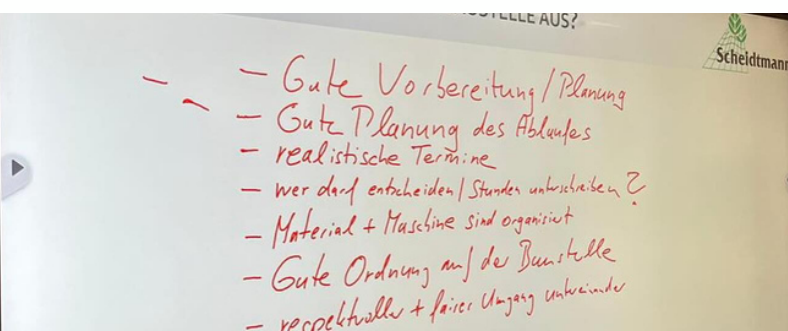 STELLE AUS?
Scheidtmann
– Gute Vorbereitung / Planung
– Gute Planung des Ablaufes
– realistische Termine
– wer darf entscheiden / Stunden unterschreiben ?
– Material + Maschine sind organisiert
– Gute Ordnung auf der Baustelle
– respektvoller + fairer Umgang untereinander